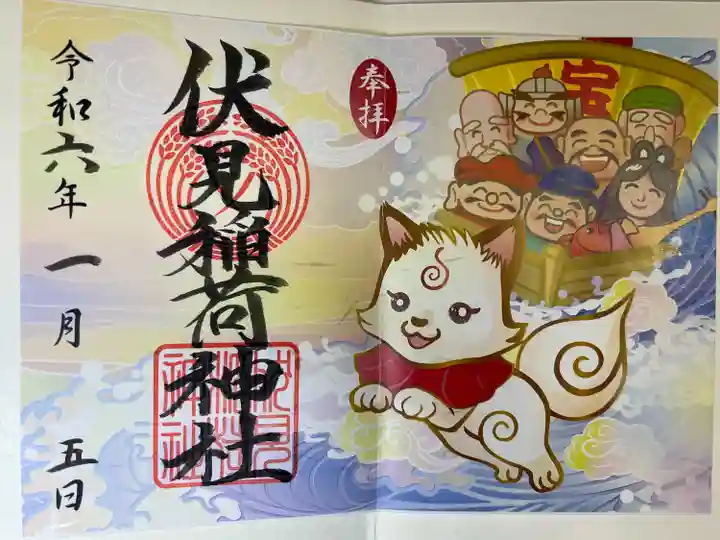 奉拝
伏見稲荷神社
令和六年 一月 五日
宝